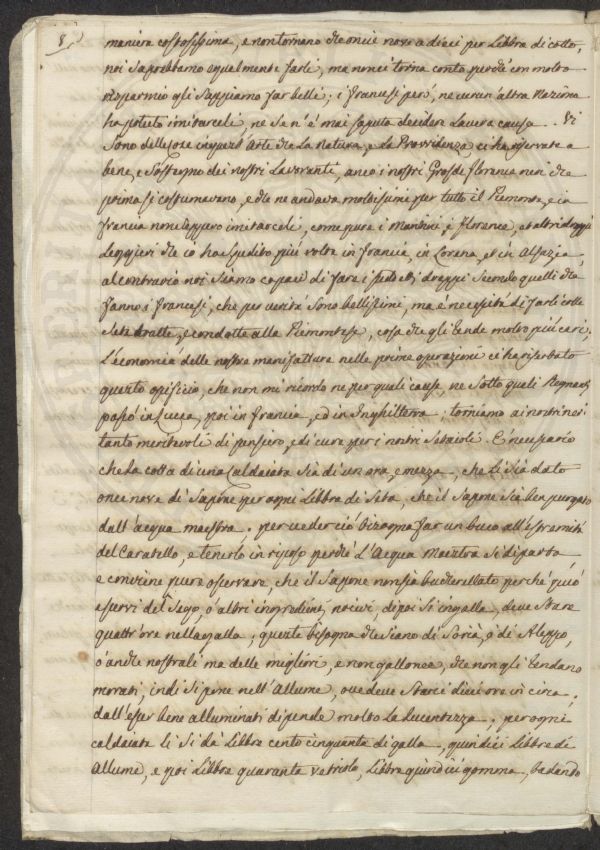 8
maniera costosissima, e non tornano che oncie nove a dieci per Libbra di cotto,
noi sapressimo egualmente farli, ma non ci torna conto perchè con molto
risparmio gli sappiamo far belli; i francesi però, ne verun'altra Nazione
ha potuto imitarceli, ne se n'è mai saputa decidere la vera causa. Vi
sono delle cose in quest'Arte che la Natura, e la Providenza ci ha riservate a
bene, e sostegno dei nostri Lavoranti, anco i nostri Gros de florence neri che
prima si costumavano, e che ne andava moltissimi per tutto il Piemonte, e in
francia non seppero imitarceli, come pure i Mantini, i florence, et altri drappi
leggieri che io ho spedito più volte in francia, in Lorena, et in Alsazia,
al contrario noi siamo capaci di fare i drappi secondo quelli che
fanno i francesi, che per verità sono bellissimi, ma è necessità di farli colle
Sete tratte, e condotte alla Piemontese, cosa che gli rende molto più cari;
L'economia delle nostre manifatture nelle prime operazioni ci ha riserbato
questo opificio, che non mi ricordo ne per quali cause, ne sotto quali Regnanti
passò in Lucca, poi in francia, ed in Inghilterra; torniamo ai nostri neri
tanto meritevoli di pensiero, e di cure per i nostri Setaioli. È necessario
che la cotta di una Caldaiata sia di un ora, e mezza, che li sia dato
once nove di Sapone per ogni Libbra di Seta, che il Sapone sia ben purgato
dall'acqua maestra; per veder ciò bisogna far un buco all'estremità
del Caratello, e tenerlo in riposo perchè L'Acqua Maestra si diparta,
e conviene pure osservare, che il Sapone non sia bucherellato perchè può
esservi del Sego, o altri ingredienti nocivi, dipoi si ingalla, deve stare
quattr'ore nella galla; queste bisogna che siano di Sorìa, o di Aleppo,
o anche nostrali ma delle migliori, e non gallonea, che non gli rendano
morati, indi si pone nell'Allume, ove deve starci dieci ore in circa,
dall'esser bene alluminati dipende molto la lucentezza, per ogni
caldaiata li si dà Libbre cento cinquanta di galla, quindici Libbre di
Allume, e poi Libbre quaranta vetriolo, Libbre quindici gomma, badando